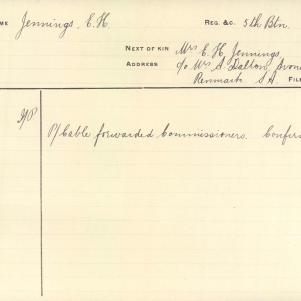 ME Jennings, E. H. REG. &C. 5th Btn.
NEXT OF KIN Mrs E. H. Jennings,
ADDRESS c/o Mrs A Dalton,
Renmark S.A. FILE
Cable forwarded Commissioners. Confer